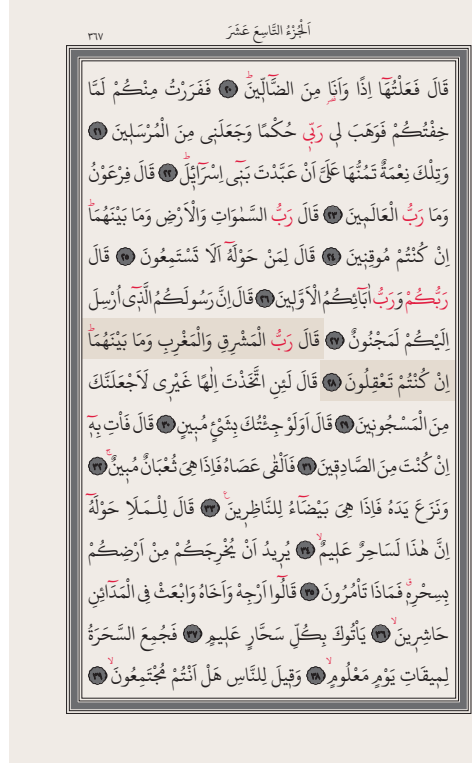 اَلْجُزْءُ التَّاسِعَ عَشَرَ
٣٦٧
قَالَ فَعَلْتُهَٓا اِذًا وَاَنَا۬ مِنَ الضَّٓالّ۪ينَۜ ﴿٢٠﴾ فَفَرَرْتُ مِنْكُمْ لَمَّا
خِفْتُكُمْ فَوَهَبَ ل۪ي رَبّ۪ي حُكْمًا وَجَعَلَن۪ي مِنَ الْمُرْسَل۪ينَ ﴿٢١﴾
وَتِلْكَ نِعْمَةٌ تَمُنُّهَا عَلَيَّ اَنْ عَبَّدْتَ بَن۪ٓي اِسْرَٓائ۪لَۜ ﴿٢٢﴾ قَالَ فِرْعَوْنُ
وَمَا رَبُّ الْعَالَم۪ينَ ﴿٢٣﴾ قَالَ رَبُّ السَّمٰوَاتِ وَالْاَرْضِ وَمَا بَيْنَهُمَاۜ
اِنْ كُنْتُمْ مُوقِن۪ينَ ﴿٢٤﴾ قَالَ لِمَنْ حَوْلَهُٓ اَلَا تَسْتَمِعُونَ ﴿٢٥﴾ قَالَ
رَبُّكُمْ وَرَبُّ اٰبَٓائِكُمُ الْاَوَّل۪ينَ ﴿٢٦﴾ قَالَ اِنَّ رَسُولَكُمُ الَّذ۪ٓي اُرْسِلَ
اِلَيْكُمْ لَمَجْنُونٌ ﴿٢٧﴾ قَالَ رَبُّ الْمَشْرِقِ وَالْمَغْرِبِ وَمَا بَيْنَهُمَاۜ
اِنْ كُنْتُمْ تَعْقِلُونَ ﴿٢٨﴾ قَالَ لَئِنِ اتَّخَذْتَ اِلٰهًا غَيْر۪ي لَاَجْعَلَنَّكَ
مِنَ الْمَسْجُون۪ينَ ﴿٢٩﴾ قَالَ اَوَلَوْ جِئْتُكَ بِشَيْءٍ مُب۪ينٍ ﴿٣٠﴾ قَالَ فَأْتِ بِه۪ٓ
اِنْ كُنْتَ مِنَ الصَّادِق۪ينَ ﴿٣١﴾ فَاَلْقٰى عَصَاهُ فَاِذَا هِيَ ثُعْبَانٌ مُب۪ينٌۚ ﴿٣٢﴾
وَنَزَعَ يَدَهُ فَاِذَا هِيَ بَيْضَٓاءُ لِلنَّاظِر۪ينَ۟ ﴿٣٣﴾ قَالَ لِلْمَلَاِ حَوْلَهُٓ
اِنَّ هٰذَا لَسَاحِرٌ عَل۪يمٌۙ ﴿٣٤﴾ يُر۪يدُ اَنْ يُخْرِجَكُمْ مِنْ اَرْضِكُمْ
بِسِحْرِه۪ۗ فَمَاذَا تَأْمُرُونَ ﴿٣٥﴾ قَالُٓوا اَرْجِهْ وَاَخَاهُ وَابْعَثْ فِي الْمَدَٓائِنِ
حَاشِر۪ينَۙ ﴿٣٦﴾ يَأْتُوكَ بِكُلِّ سَحَّارٍ عَل۪يمٍ ﴿٣٧﴾ فَجُمِعَ السَّحَرَةُ
لِم۪يقَاتِ يَوْمٍ مَعْلُومٍۙ ﴿٣٨﴾ وَق۪يلَ لِلنَّاسِ هَلْ اَنْتُمْ مُجْتَمِعُونَۙ ﴿٣٩﴾